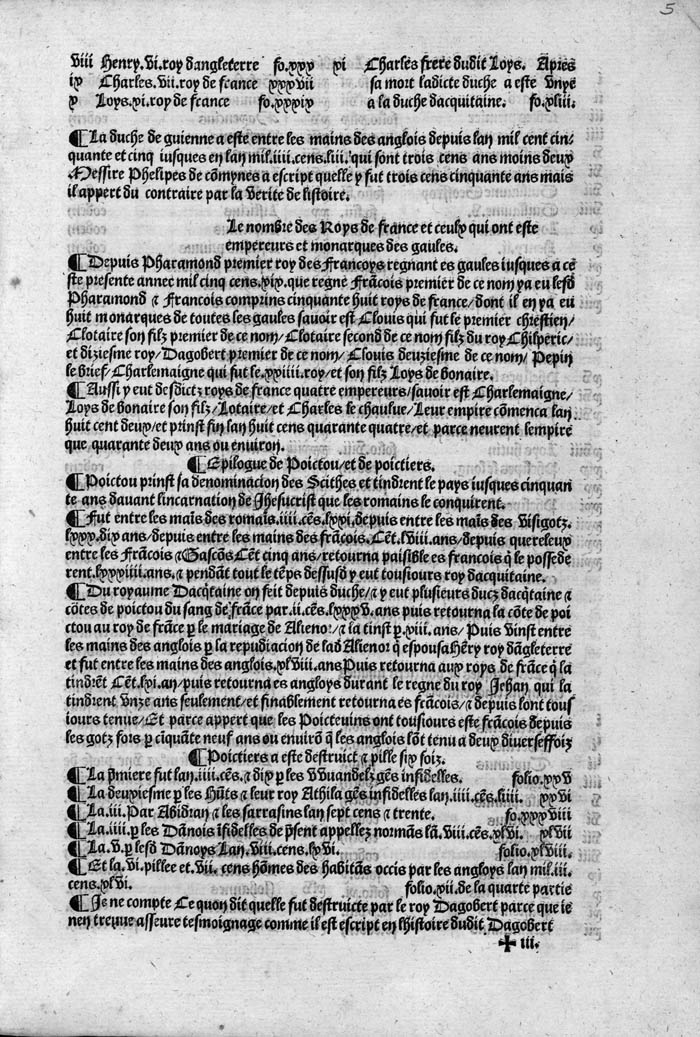 5
viii Henry.vi.roy dangleterre fo.xxx xi Charles frere dudit Loys. Apres
ix Charles.vii.roy de france xxxvii sa mort ladicte duche a este vnye
x Loys.xi.roy de france fo.xxxix a la duche dacquitaine. fo.xliii.
¶La duche de guienne a este entre les mains des anglois depuis lan mil cent cin⸗
quante et cinq iusques en lan mil.iiii.cens.liii. qui sont trois cens ans moins deux
Messire Phelipes de cōmynes a escript quelle y fut trois cens cinquante ans mais
il appert du contraire par la verite de listoire.
Le nombre des Roys de france et ceulx qui ont este
empereurs et monarques des gaules.
¶Depuis Pharamond premier roy des Francoys regnant es gaules iusques a ce
ste presente annee mil cinq cens.xix.que regne Frācois premier de ce nom ya eu lesd
Pharamond ⁊ Francois comprins cinquante huit roys de france/dont il en ya eu
huit monarques de toutes les gaules sauoir est Clouis qui fut le premier chrestien/
Clotaire son filz premier de ce nom/Clotaire second de ce nom filz du roy Chilperic/
et diziesme roy/Dagobert premier de ce nom/Clouis deuziesme de ce nom/Pepin
le brief/Charlemaigne qui fut le.xxiiii.roy/et son filz Loys de bonaire.
¶Aussi y eut desdictz roys de france quatre empereurs/sauoir est Charlemaigne/
Loys de bonaire son filz/Lotaire/et Charles le chaulue/Leur empire cōmenca lan
huit cent deux/et prinst fin lan huit cens quarante quatre/et parce neurent lempire
que quarante deux ans ou enuiron.
¶Epilogue de Poictou/et de poictiers.
¶Poictou prinst sa denominacion des Scithes et tindrent le pays iusques cinquan
te ans dauant lincarnation de Jhesucrist que les romains le conquirent.
¶Fut entre les maīs des romaīs.iiii.cēs.lxxi,depuis entre les maīs des visigotz.
lxxx.dix ans/depuis entre les mains des frācois.Cēt.lviii.ans/depuis quereleux
entre les Frācois ⁊Gascōs Cēt cinq ans/retourna paisible es francois q̄ le possede
rent.lxxxiiii.ans.⁊ pendāt tout le tēps dessusd y eut tousiours roy dacquitaine.
¶Du royaume Dacq̄taine on feit depuis duche/⁊ y eut plusieurs ducz dacq̄taine ⁊
cōtes de poictou du sang de frāce par.ii.cēs.lxxxv.ans puis retourna la cōte de poi
ctou au roy de frāce ꝑ le mariage de Alienor/⁊ la tinst ꝑ.xiii.ans/Puis vinst entre
les mains des anglois ꝑ la repudiacion de lad Alienor q̄ espousa Hēry roy dāgleterre
et fut entre les mains des anglois.xlviii.ans Puis retourna aux roys de frāce q̄ la
tindrēt Cēt.lxi.an/puis retourna es angloys durant le regne du roy Jehan qui la
tindrent vnze ans seulement/et finablement retourna es frācois/⁊ depuis lont tous
iours tenue/Et parce appert que les Poicteuins ont tousiours este frācois depuis
les gotz fors ꝑ cīquāte neuf ans ou enuirō q̄ les anglois lōt tenu a deux diuerseffoiz
¶Poictiers a este destruict ⁊ pille six foiz.
¶La p̄miere fut lan.iiii.cēs.⁊ dix ꝑ les vvuandelz gēs infidelles. folio.xxv
¶La deuxiesme ꝑ les Hūts ⁊ leur roy Athila gēs infidelles lan.iiii.cēs.liiii. xxvi
¶La.iii.Par Abidran ⁊ les sarrasins lan sept cens ⁊ trente. fo.xxxviii
¶La.iiii.ꝑ les Dānois īfidelles de p̄sent appellez normās lā.viii.cēs.xlvi. xlvii
¶La.v.ꝑ lesd Dānoys Lan.viii.cens.lxvi. folio.xlviii.
¶Et la.vi.pillee et.vii.cens hōmes des habitās occis par les angloys lan mil.iii.
cens.xlvi. folio.xii.de la quarte partie
¶Je ne compte Ce quon dit quelle fut destruicte par le roy Dagobert parce que ie
nen treuue asseure tesmoignage comme il est escript en lhistoire dudit Dagobert
✠ iii.